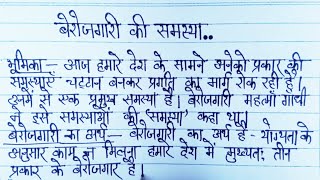 बेरोजगारी की समस्या..
भूमिका - आज हमारे देश के सामने अनेको प्रकार की
समस्याएँ चट्टान बनकर प्रगति का मार्ग रोक रही है
इनमे से एक प्रमुख समस्या है। बेरोजगारी महत्मा गाधी
ने इसे समस्याओं की 'समस्या' कहा था।
बेरोजगारी का अर्थ - बेरोजगारी का अर्थ है - योग्यता के
अनुसार काम न मिलना हमारे देश मे मुख्यतः तीन
प्रकार के बेरोजगार है।